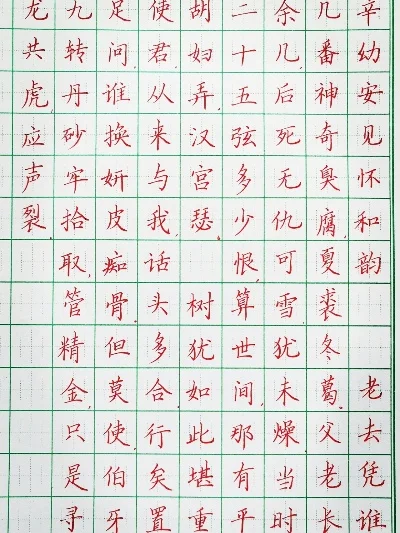 辛幼安见怀和韵 老去凭谁
几番神奇臭腐,夏裘冬葛.父老长
余几后死无仇可雪犹未燥当时
二十五弦多少恨,算世间,那有平
胡妇弄汉宫瑟. 树犹如此堪重
使君从来与我,话头多合.行矣置
足问谁换妍皮痴骨.但莫使伯牙
九转丹砂牢拾取,管精金,只是寻
龙共虎,应声裂.